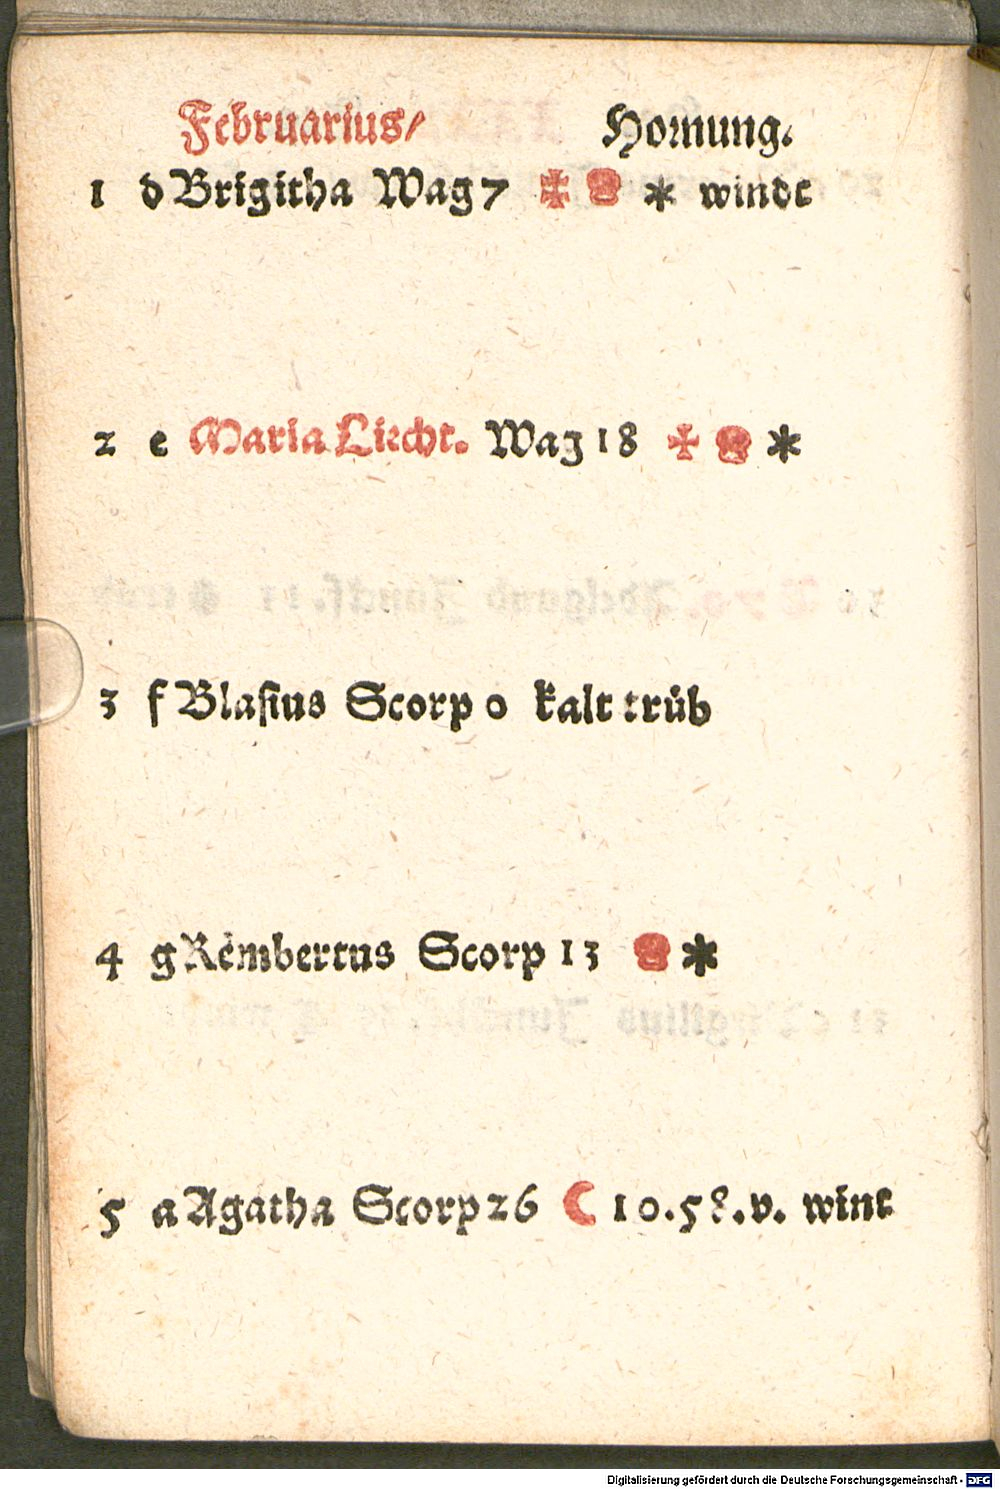 Februarius/ Hornung.
1 d Brigitha Wag 7 ✠ * winde
2 e Maria Liecht. Wag 18 ✠ *
3 f Blasius Scorp 0 kalt trüb
4 g Rembertus Scorp 13 *
5 a Agatha Scorp 26 ☾ 10.58.v. wint
Digitalisierung gefördert durch die Deutsche Forschungsgemeinschaft - DFG